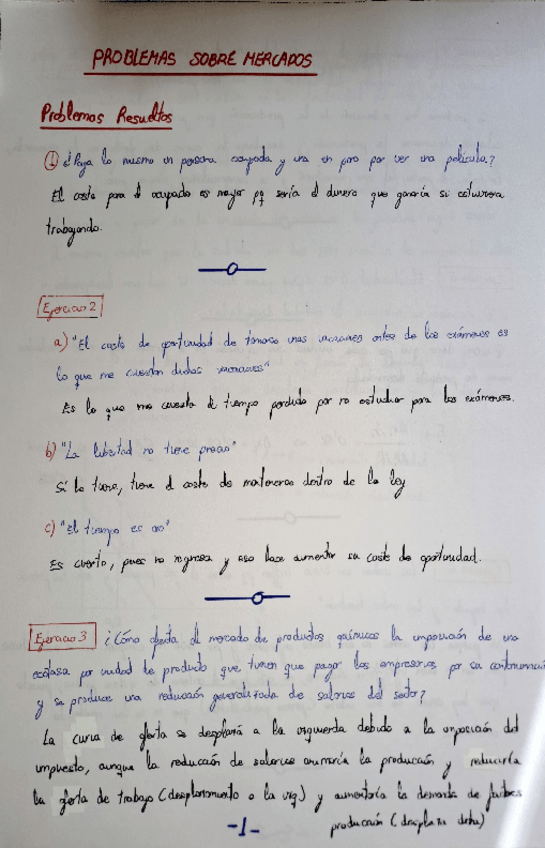 PROBLEMAS SOBRE MERCADOS
Problemas Resueltos
① ¿Paga lo mismo un persona ocupada y una en paro por ver una película?
El coste para el ocupado es mayor pq sería el dinero que ganaría si estuviera
trabajando.
Ejercicio 2
a) "El coste de oportunidad de tomarse unas vacaciones antes de los exámenes es
lo que me cuestan dichas vacaciones"
Es lo que me cuesta el tiempo perdido por no estudiar para los exámenes.
b) "La libertad no tiene precio"
Sí lo tiene, tiene el coste de mantenerse dentro de la ley
c) "el tiempo es oro"
Es cierto, pues no regresa y eso hace aumentar su coste de oportunidad.
Ejercicio 3 ¿Cómo afecta al mercado de productos químicos la imposición de una
ecotasa por unidad de producto que tienen que pagar las empresas por su contaminación
y se produce una reducción generalizada de salarios del sector?
La curva de oferta se desplazará a la izquierda debido a la imposición del
impuesto, aunque la reducción de salarios la producción y reduciría
la oferta de trabajo (desplazamiento a la izq) y aumentaría la demanda de
producción (desplaza dcha)
-1-